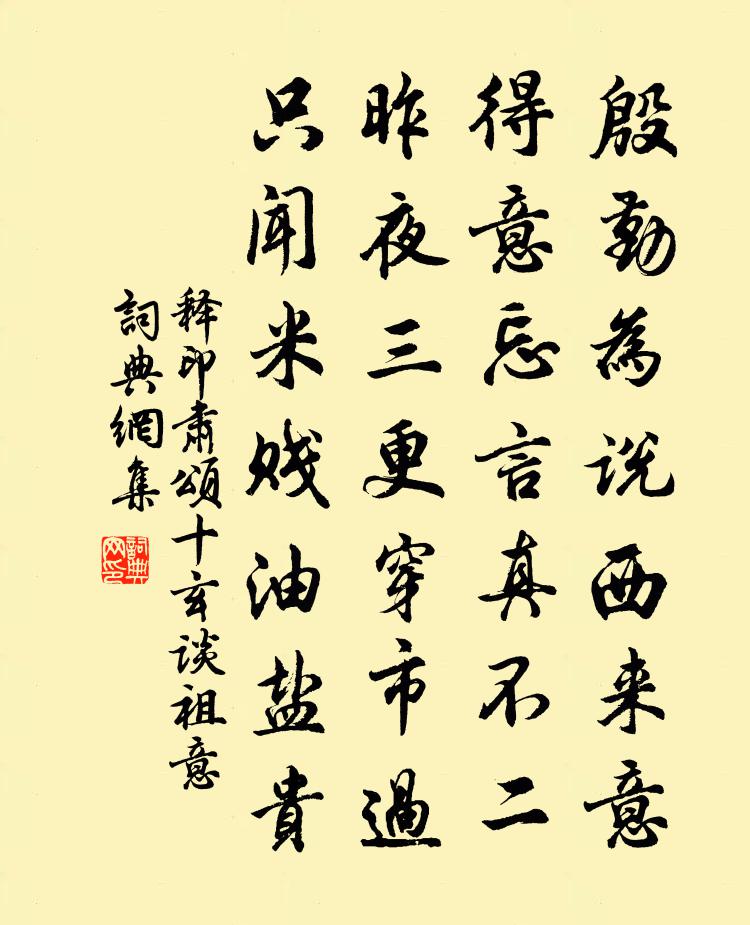 殷勤為説西来意
得意忘言真不二
昨夜三更穿市過
只闻米贱油盐貴
释印肅頌十玄谈祖意
詞典網集
詞典
网印